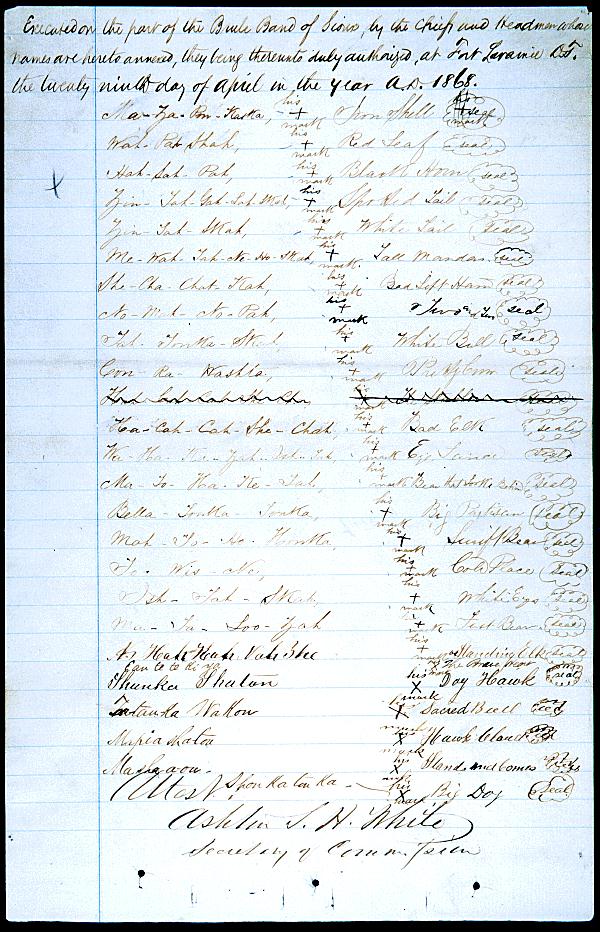 Executed on the part of the Brule Band of Sioux, by the chiefs and headmen whose
names are hereto annexed, they being thereunto duly authorized, at Fort Laramie D.T.
the twenty ninth day of April in the year A.D. 1868.
Ma-Za-Pon-Kaska, his + mark Iron Shell seal
Wah-Pat-Shah, his + mark Red Leaf seal
Hah-Sah-Pah, his + mark Black Horn seal
Zin-Tah-Gah-Lat-Skat, his + mark Spotted Tail seal
Zin-Tah-Skah, his + mark White Tail seal
Me-Wah-Tah-Ne-Ho-Skah, his + mark Tall Mandas seal
She-Cha-Chat-Kah, his + mark Bad Left Hand seal
No-Mah-No-Pah, his + mark Two and Two seal
Tah-Tonka-Skah, his + mark White Bull seal
Con-Ra-Washta, his + mark Pretty Coon seal
Ha-Cah-Cah-She-Chah, his + mark Bad Elk seal
his + mark Eye Lance seal
Ma-To-Ha-Ke-Tah, his + mark Bear that Looks Behind seal
Bella-Tonka-Tonka, his + mark Big Partisan seal
Mah-To-Ho-Honka, his + mark Swift Bear seal
To-Wis-Ne, his + mark Cold Place seal
Ish-Tah-Skah, his + mark White Eyes seal
Ma-Ta-Loo-Zah, his + mark Fast Bear seal
As Hah-Hah-Nah-She his + mark Standing Elk seal
Can te te ki ya his x mark The Brave heart seal
Shunka Shaton his x mark Day Hawk seal
Tatanka Wakon his x mark Sacred Bull seal
Mapia Shaton his x mark Hawk Cloud
Masha aow his x mark Stands and Comes
Attest. Shon ka ton ka his x mark Big Dog seal
Ashton S. H. White
Secretary of Commission